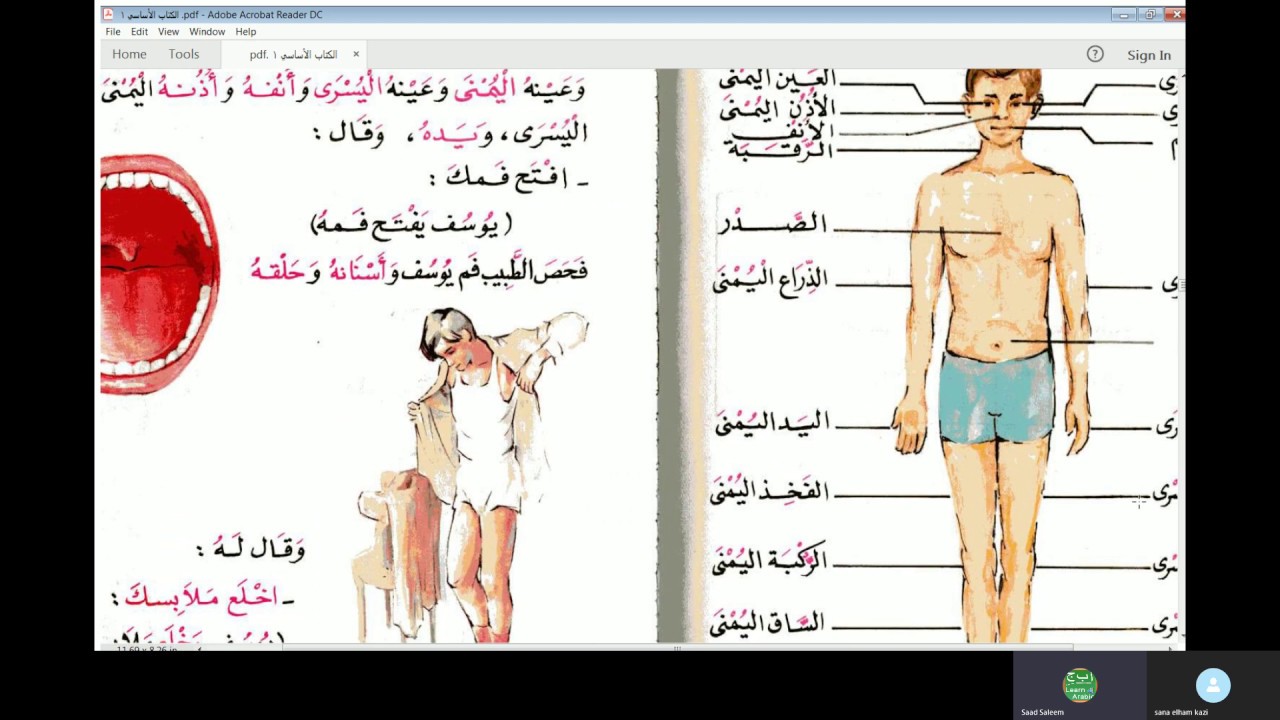 الكتاب الأساسي ١ .pdf - Adobe Acrobat Reader DC
File Edit View Window Help
Home Tools الكتاب الأساسي ١ .pdf × ? Sign In
وَعَيْنهُ الْيُمْنَى وَعَيْنهُ الْيُسْرَى وَأَنْفهُ وَأُذُنهُ الْيُمْنَى
الْيُسْرَى، وَيَدهُ، وَقَال :
ـ افْتَح فَمكَ :
( يُوسُف يَفْتَح فَمهُ)
فَحَصَ الطَّبِيب فَم يُوسُف وَأَسْنَانهُ وَحَلْقهُ
وَقَال لَهُ :
ـ اخْلَع مَلاَبِسكَ :
العَيْن اليُمْنَى
الأُذُن اليُمْنَى
الأَنْف
الرَّقَبَة
الصَّدْر
الذِّرَاع الْيُمْنَى
اليَد اليُمْنَى
الفَخِذ اليُمْنَى
الرُّكْبَة اليُمْنَى
السَّاق اليُمْنَى
11.69 x 8.26 in
Learn Arabic
Saad Saleem
sana elham kazi